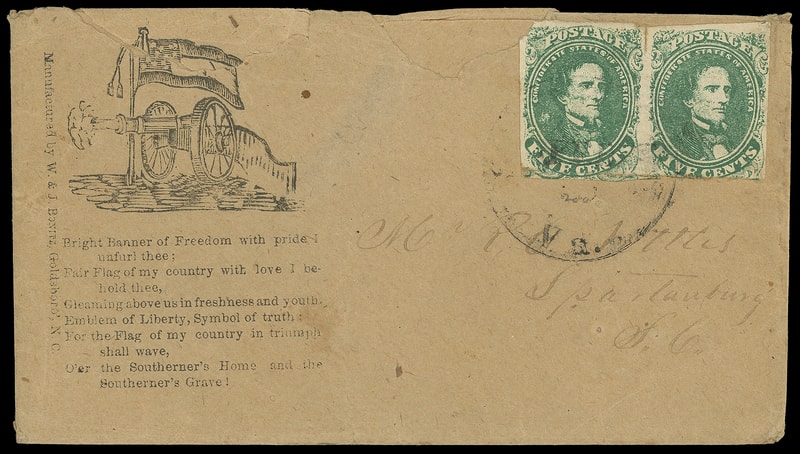 Manufactured by W. & J. Bonitz, Goldsboro', N. C.
Bright Banner of Freedom with pride I
unfurl thee;
Fair Flag of my country with love I be-
hold thee,
Gleaming above us in freshness and youth.
Emblem of Liberty, Symbol of truth:
For the Flag of my country in triumph
shall wave,
O'er the Southerner's Home and the
Southerner's Grave!
POSTAGE
CONFEDERATE STATES OF AMERICA
FIVE CENTS
POSTAGE
CONFEDERATE STATES OF AMERICA
FIVE CENTS
Va.
Spartanburg
S. C.